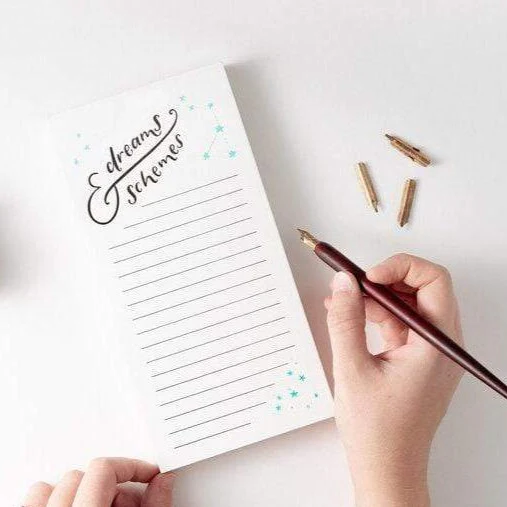 dreams
& schemes